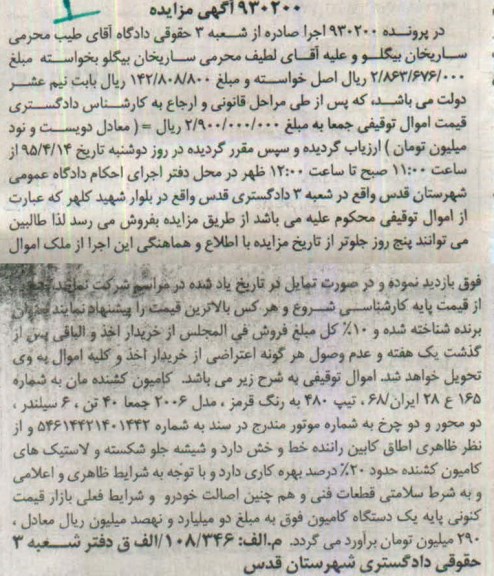 ۹۳۰۲۰۰ آگهی مزایده
در پرونده ۹۳۰۲۰۰ اجرا صادره از شعبه ۳ حقوقی دادگاه آقای طیب محرمی
ساریخان بیگلو و علیه آقای لطیف محرمی ساریخان بیگلو بخواسته مبلغ
۲/۸۶۳/۶۷۶/۰۰۰ ریال اصل خواسته و مبلغ ۱۴۲/۸۰۸/۸۰۰ ریال بابت نیم عشر
دولت می باشد، که پس از طی مراحل قانونی و ارجاع به کارشناس دادگستری
قیمت اموال توقیفی جمعا به مبلغ ۲/۹۰۰/۰۰۰/۰۰۰ ریال = ( معادل دویست و نود
میلیون تومان ) ارزیاب گردیده و سپس مقرر گردیده در روز دوشنبه تاریخ ۹۵/۴/۱۴ از
ساعت ۱۱:۰۰ صبح تا ساعت ۱۲:۰۰ ظهر در محل دفتر اجرای احکام دادگاه عمومی
شهرستان قدس واقع در شعبه ۳ دادگستری قدس واقع در بلوار شهید کلهر که عبارت
از اموال توقیفی محکوم علیه می باشد از طریق مزایده بفروش می رسد لذا طالبین
می توانند پنج روز جلوتر از تاریخ مزایده با اطلاع و هماهنگی این اجرا از ملک اموال
فوق بازدید نموده و در صورت تمایل در تاریخ یاد شده در مراسم شرکت نمایند.
از قیمت پایه کارشناسی شروع و هر کس بالاترین قیمت را پیشنهاد نمایند بعنوان
برنده شناخته شده و ۱۰٪ کل مبلغ فروش في المجلس از خریدار اخذ و الباقی پس از
گذشت یک هفته و عدم وصول هر گونه اعتراضی از خریدار اخذ و کلیه اموال به وی
تحویل خواهد شد. اموال توقیفی به شرح زیر می باشد. کامیون کشنده مان به شماره
۱۶۵ ع ۲۸ ایران/۶۸، تیپ ۴۸۰ به رنگ قرمز ، مدل ۲۰۰۶ جمعا ۴۰ تن ، ۶ سیلندر ،
دو محور و دو چرخ به شماره موتور مندرج در سند به شماره ۵۴۶۱۴۴۲۱۴۰۱۴۴۲ و از
نظر ظاهری اطاق کابین راننده خط و خش دارد و شیشه جلو شکسته و لاستیک های
کامیون کشنده حدود ۲۰٪ درصد بهره کاری دارد و با توجه به شرایط ظاهری و اعلامی
و به شرط سلامتی قطعات فنی و هم چنین اصالت خودرو و شرایط فعلی بازار قیمت
کنونی پایه یک دستگاه کامیون فوق به مبلغ دو میلیارد و نهصد میلیون ریال معادل ،
۲۹۰ میلیون تومان براورد می گردد. م.الف: ۱۰۸/۳۴۶/الف ق دفتر شعبه ۳
حقوقی دادگستری شهرستان قدس